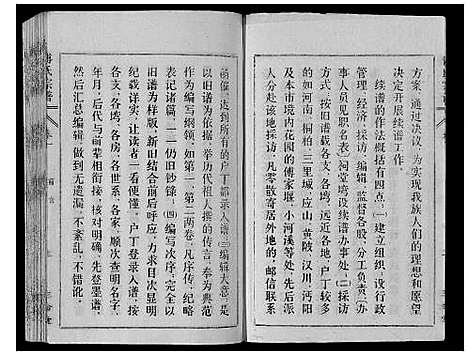 方案，通过决议，为实现我族人们的理想和愿望
决定开展续谱工作。
续谱的作法概括有四点，（一）建立组织，设行政
管理、经济、採访、编辑、监督各股，分工负责，办
事人员（见职名表）祠堂塆设续谱办事处。（二）採访
方式，按旧谱载各支、各塆，远近各地，户丁较多
的，如河南，桐柏，三里城，应山，黄陂，汉川，沔阳
及本市境内花园的傅家堰，小河溪等处，先后派
人分赴该地採访，凡零散寄居外地的，邮信联系
函催，达到所有的户丁都录入谱，（三）编辑大意，是
以旧谱为根据，力举历代祖人撰的传言，奉为典范
和续谱的编写纲领，如第一、第二两卷，凡序传，纪略
表记诸篇，一一仍旧钞録。（四）编写次序，完全以
旧谱为样版，新旧结合，前后呼应，力求目次显明
纪载详实，让读者一看便懂，户丁登录入谱，按
各支、各塆、各房、各世系，各家，顺次查明名字，
年月，后代与前辈相衔接，核对明确，先登墨谱，
然后汇总编辑，做到无遗漏，不紊乱，不错讹。